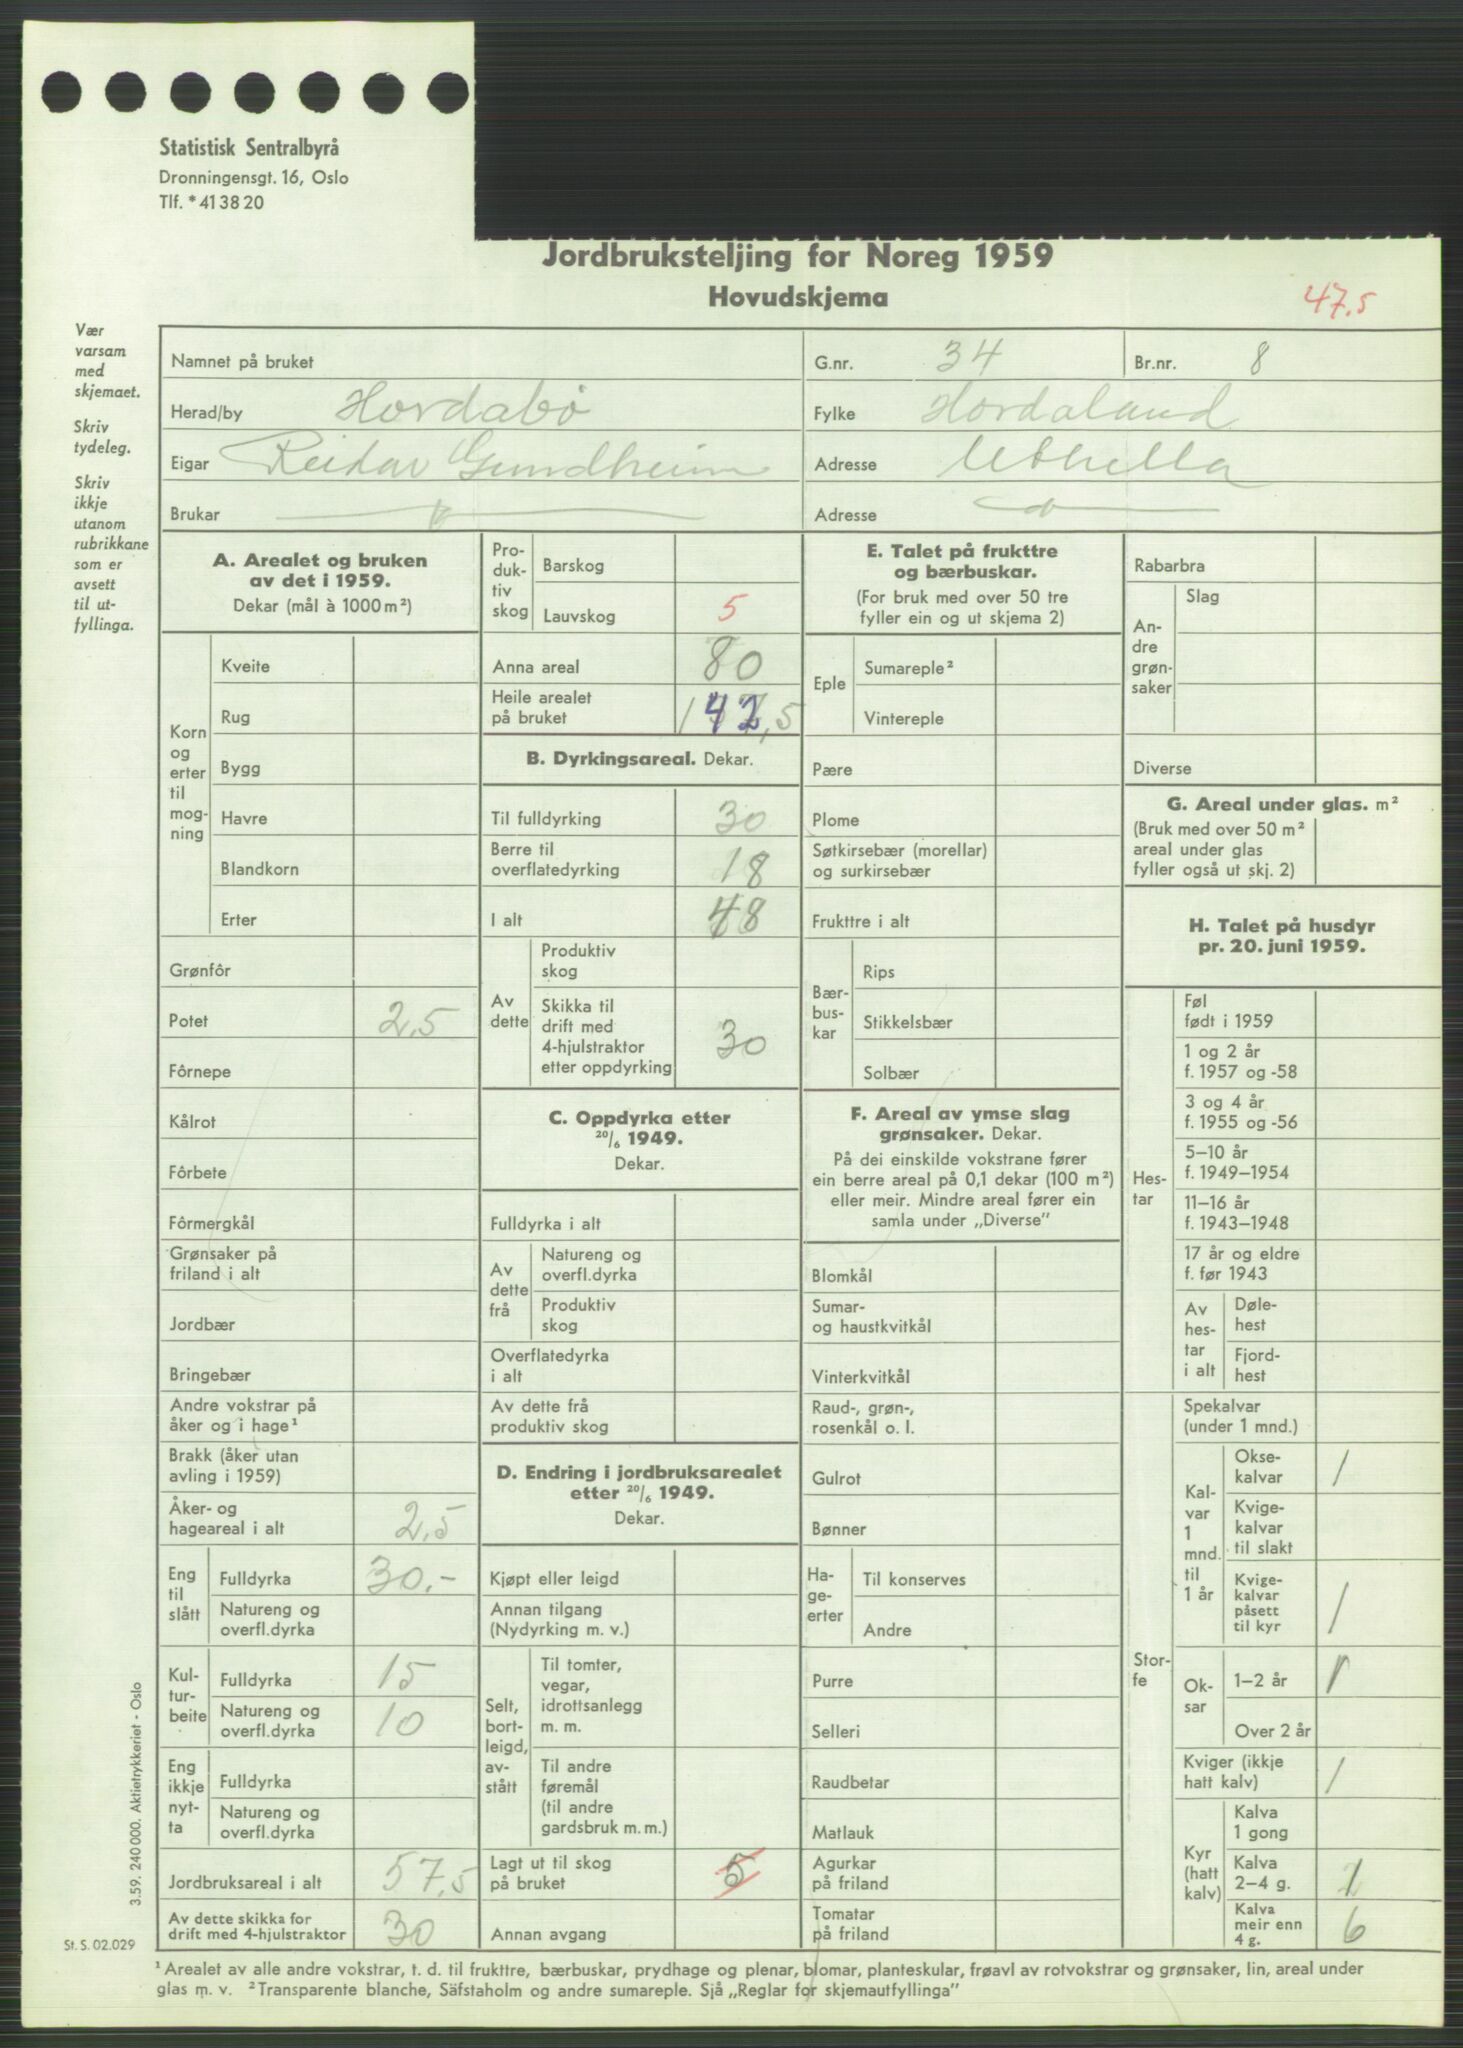 Statistisk Sentralbyrå
Dronningensgt. 16, Oslo
Tlf. *41 38 20
Jordbruksteljing for Noreg 1959
Hovudskjema
47,5
Vær
varsam
med
skjemaet.
Skriv
tydeleg.
Skriv
ikkje
utanom
rubrikkane
som er
avsett
til ut-
fyllinga.
Namnet på bruket
G.nr. 34
Br.nr. 8
Herad/by Hordabø
Fylke Hordaland
Eigar Reidar Gundheim
Adresse
Brukar
Adresse
A. Arealet og bruken
av det i 1959.
Dekar (mål à 1000 m²)
Korn
og
erter
til
mog-
ning
Kveite
Rug
Bygg
Havre
Blandkorn
Erter
Grønfôr
Potet 2,5
Fôrnepe
Kålrot
Fôrbete
Fôrmergkål
Grønsaker på
friland i alt
Jordbær
Bringebær
Andre vokstrar på
åker og i hage¹
Brakk (åker utan
avling i 1959)
Åker- og
hageareal i alt 2,5
Eng
til
slått
Fulldyrka 30.-
Natureng og
overfl.dyrka
Kul-
tur-
beite
Fulldyrka 15
Natureng og
overfl.dyrka 10
Eng
ikkje
nyt-
ta
Fulldyrka
Natureng og
overfl.dyrka
Jordbruksareal i alt 57,5
Av dette skikka for
drift med 4-hjulstraktor 30
Pro-
duk-
tiv
skog
Barskog
Lauvskog 5
Anna areal 80
Heile arealet
på bruket 142,5
B. Dyrkingsareal. Dekar.
Til fulldyrking 30
Berre til
overflatedyrking 18
I alt 48
Av
dette
Produktiv
skog
Skikka til
drift med
4-hjulstraktor
etter oppdyrking 30
C. Oppdyrka etter
20/6 1949.
Dekar.
Fulldyrka i alt
Av
dette
frå
Natureng og
overfl.dyrka
Produktiv
skog
Overflatedyrka
i alt
Av dette frå
produktiv skog
D. Endring i jordbruksarealet
etter 20/6 1949.
Dekar.
Kjøpt eller leigd
Annan tilgang
(Nydyrking m. v.)
Selt,
bort-
leigd,
av-
stått
Til tomter,
vegar,
idrottsanlegg
m. m.
Til andre
føremål
(til andre
gardsbruk m. m.)
Lagt ut til skog
på bruket 5
Annan avgang
E. Talet på frukttre
og bærbuskar.
(For bruk med over 50 tre
fyller ein og ut skjema 2)
Eple
Sumareple²
Vintereple
Pære
Plome
Søtkirsebær (morellar)
og surkirsebær
Frukttre i alt
Bær-
bus-
kar
Rips
Stikkelsbær
Solbær
F. Areal av ymse slag
grønsaker. Dekar.
På dei einskilde vokstrane fører
ein berre areal på 0,1 dekar (100 m²)
eller meir. Mindre areal fører ein
samla under „Diverse”
Blomkål
Sumar-
og haustkvitkål
Vinterkvitkål
Raud-, grøn-,
rosenkål o. l.
Gulrot
Bønner
Ha-
ge-
erter
Til konserves
Andre
Purre
Selleri
Raudbetar
Matlauk
Agurkar
på friland
Tomatar
på friland
Rabarbra
An-
dre
grøn-
saker
Slag
Diverse
G. Areal under glas. m²
(Bruk med over 50 m²
areal under glas
fyller også ut skj. 2)
H. Talet på husdyr
pr. 20. juni 1959.
Hes-
tar
Føl
født i 1959
1 og 2 år
f. 1957 og -58
3 og 4 år
f. 1955 og -56
5–10 år
f. 1949–1954
11–16 år
f. 1943–1948
17 år og eldre
f. før 1943
Av
hes-
tar
i alt
Døle-
hest
Fjord-
hest
Stor-
fe
Spekalvar
(under 1 mnd.)
Kal-
var
1
mnd.
til
1 år
Okse-
kalvar 1
Kvige-
kalvar
til slakt
Kvige-
kalvar
påsett
til kyr 1
Ok-
sar
1–2 år 1
Over 2 år
Kviger (ikkje
hatt kalv) 1
Kyr
(hatt
kalv)
Kalva
1 gong
Kalva
2–4 g.
Kalva
meir enn
4 g. 6
3.59. 240 000. Aktietrykkeriet - Oslo
St. S. 02.029
¹ Arealet av alle andre vokstrar, t. d. til frukttre, bærbuskar, prydhage og plenar, blomar, planteskular, frøavl av rotvokstrar og grønsaker, lin, areal under
glas m. v. ² Transparente blanche, Säfstaholm og andre sumareple. Sjå „Reglar for skjemautfyllinga”